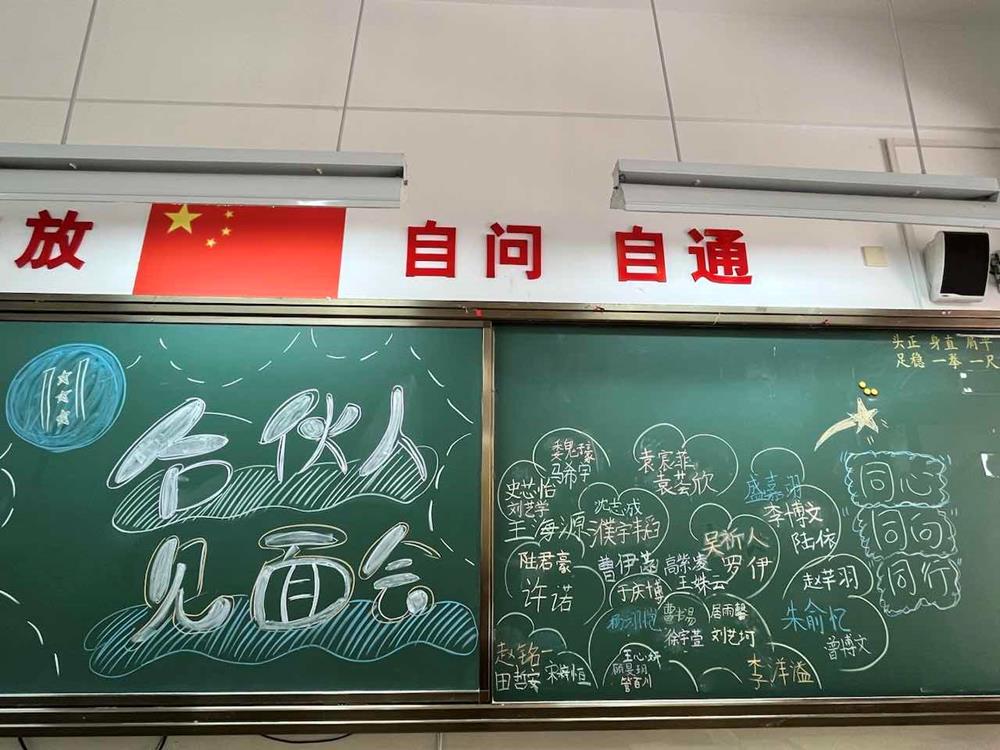 放 自问 自通
头正 身直 肩平
足稳 一拳 一尺
合伙人
见面会
同心
同向
同行
马希宇
袁慕菲
袁荟欣
史芯怡
刘艺学
沈志成
盛嘉羽
李博文
陆依
王海源
吴祈人
罗伊
陆君豪
曹伊菡
王姝云
许诺
于庆博
赵芊羽
居雨馨
徐宇萱
刘艺珂
朱俞忆
曾博文
赵铭一
田哲安
王心妍
管百川
李洋溢